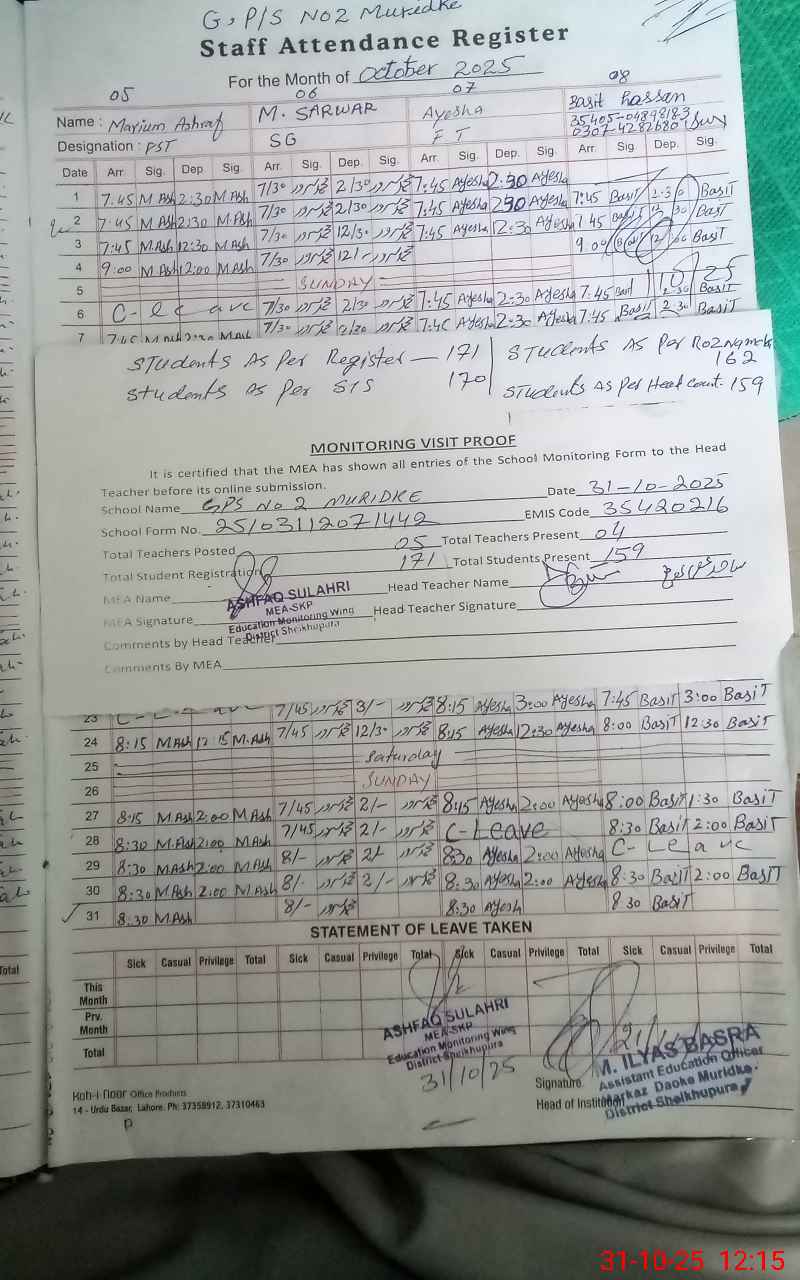 G, P/S NO2 Muridke
Staff Attendance Register
For the Month of October 2025
05 06 07 08
Name : Marium Ashraf M. SARWAR Ayesha Basit Hassan
35405-04898183
0307-4282680
Designation : PST SG F T
Date Arr. Sig. Dep. Sig. Arr. Sig. Dep. Sig. Arr. Sig. Dep. Sig. Arr. Sig. Dep. Sig.
1 7.45 M Ash 2:30 M Ash 7/30 2/30 7:45 Ayesha 2:30 Ayesha 7:45 Basit 2:30 Basit
2 7:45 M Ash 2:30 M Ash 7/30 2/30 7:45 Ayesha 2:30 Ayesha 7:45 Basit Basit
3 7:45 M Ash 12:30 M Ash 7/30 12/30 7:45 Ayesha 12:30 Ayesha Basit
4 9:00 M Ash 12:00 M Ash 7/30 12/-
5 SUNDAY
6 C-leave 7/30 2/30 7:45 Ayesha 2:30 Ayesha 7:45 Basit 2:30 Basit
7 7:45 M Ash 2:30 M Ash 7/30 2/30 7:45 Ayesha 2:30 Ayesha 7:45 Basit 2:30 Basit
STudents As Per Register — 171
Students as per SIS 170
STudents As Per 162
STudents As Per Head Count. 159
MONITORING VISIT PROOF
It is certified that the MEA has shown all entries of the School Monitoring Form to the Head
Teacher before its online submission.
School Name GPS No 2 MURIDKE Date 31-10-2025
School Form No. 25103112071442 EMIS Code 35420216
Total Teachers Posted 05 Total Teachers Present 04
Total Student Registration 171 Total Students Present 159
MEA Name Head Teacher Name
MEA Signature Head Teacher Signature
ASHFAQ SULAHRI
MEA-SKP
Education Monitoring Wing
District Sheikhupura
Comments by Head Teacher
Comments By MEA
23 C-Leave 7/45 3/- 8:15 Ayesha 3:00 Ayesha 7:45 Basit 3:00 Basit
24 8:15 M Ash 12:15 M.Ash 7/45 12/30 8:15 Ayesha 12:30 Ayesha 8:00 Basit 12:30 Basit
25 Saturday
26 SUNDAY
27 8:15 M.Ash 2:00 M Ash 7/45 2/- 8:15 Ayesha 2:00 Ayesha 8:00 Basit 1:30 Basit
28 8:30 M.Ash 2:00 M Ash 7/45 2/- C-Leave 8:30 Basit 2:00 Basit
29 8:30 M Ash 2:00 M Ash 8/- 2/- 8:30 Ayesha 2:00 Ayesha C-Leave
30 8:30 M Ash 2:00 M Ash 8/- 2/- 8:30 Ayesha 2:00 Ayesha 8:30 Basit 2:00 Basit
31 8:30 M Ash 8/- 8:30 Ayesha 8 30 Basit
STATEMENT OF LEAVE TAKEN
Sick Casual Privilege Total Sick Casual Privilege Total Sick Casual Privilege Total Sick Casual Privilege Total
This Month
Prv. Month
Total
ASHFAQ SULAHRI
MEA-SKP
Education Monitoring Wing
District Sheikhupura
31/10/25
Signature
Head of Institution
M. ILYAS BASRA
Assistant Education Officer
Markaz Daoke Muridke
District Sheikhupura
Koh-i-noor Office Products
14 - Urdu Bazar, Lahore. Ph: 37358912, 37310463
P
31-10-25 12:15